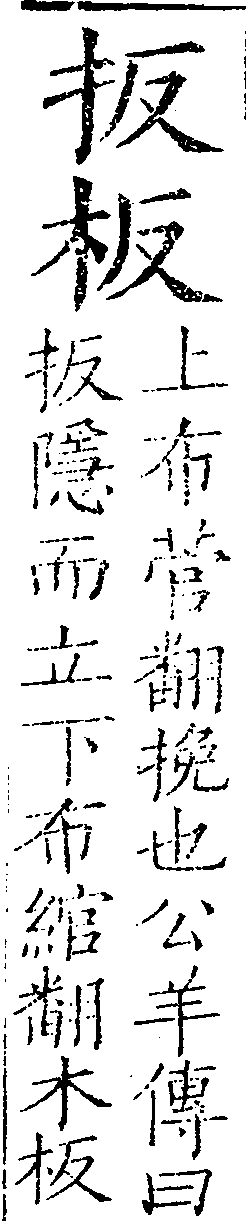 扳板
上布菅翻挽也公羊傳曰
扳隱而立下布綰翻木板